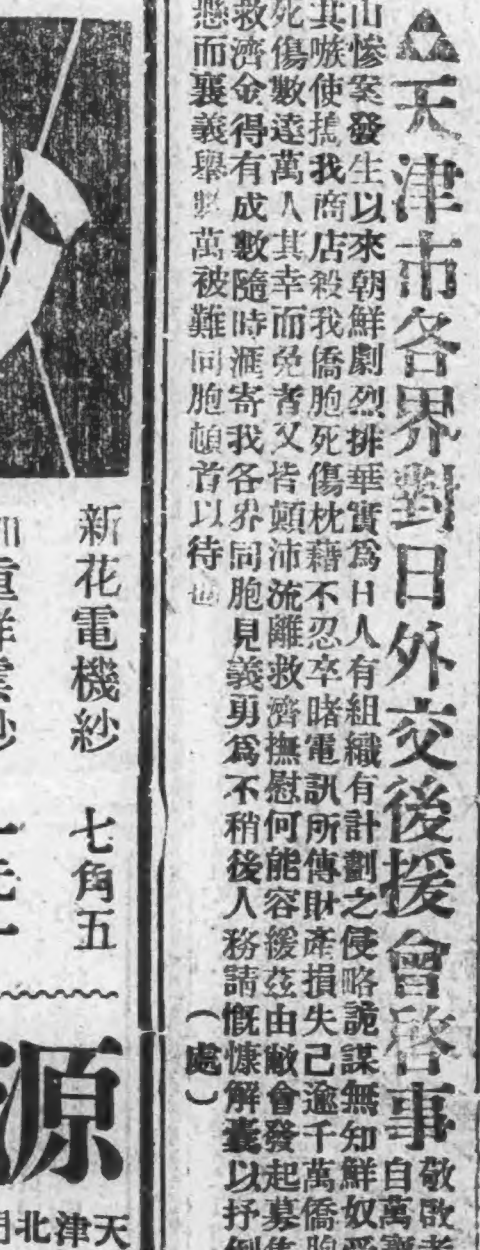 ▲天津市各界對日外交後援會啓事
敬啟者
自萬寶
山慘案發生以來朝鮮劇烈排華實爲日人有組織有計劃之侵略詭謀無知鮮奴受
其嗾使搗我商店殺我僑胞死傷枕藉不忍卒睹電訊所傳財產損失已逾千萬僑胞
死傷數達萬人其幸而免者又皆顛沛流離救濟撫慰何能容緩茲由敝會發起募集
救濟金得有成數隨時滙寄我各界同胞見義勇爲不稍後人務請慨慷解囊以抒倒
懸而襄義舉數萬被難同胞頓首以待也
(處)
新花電機紗 七角五
源
天津北門